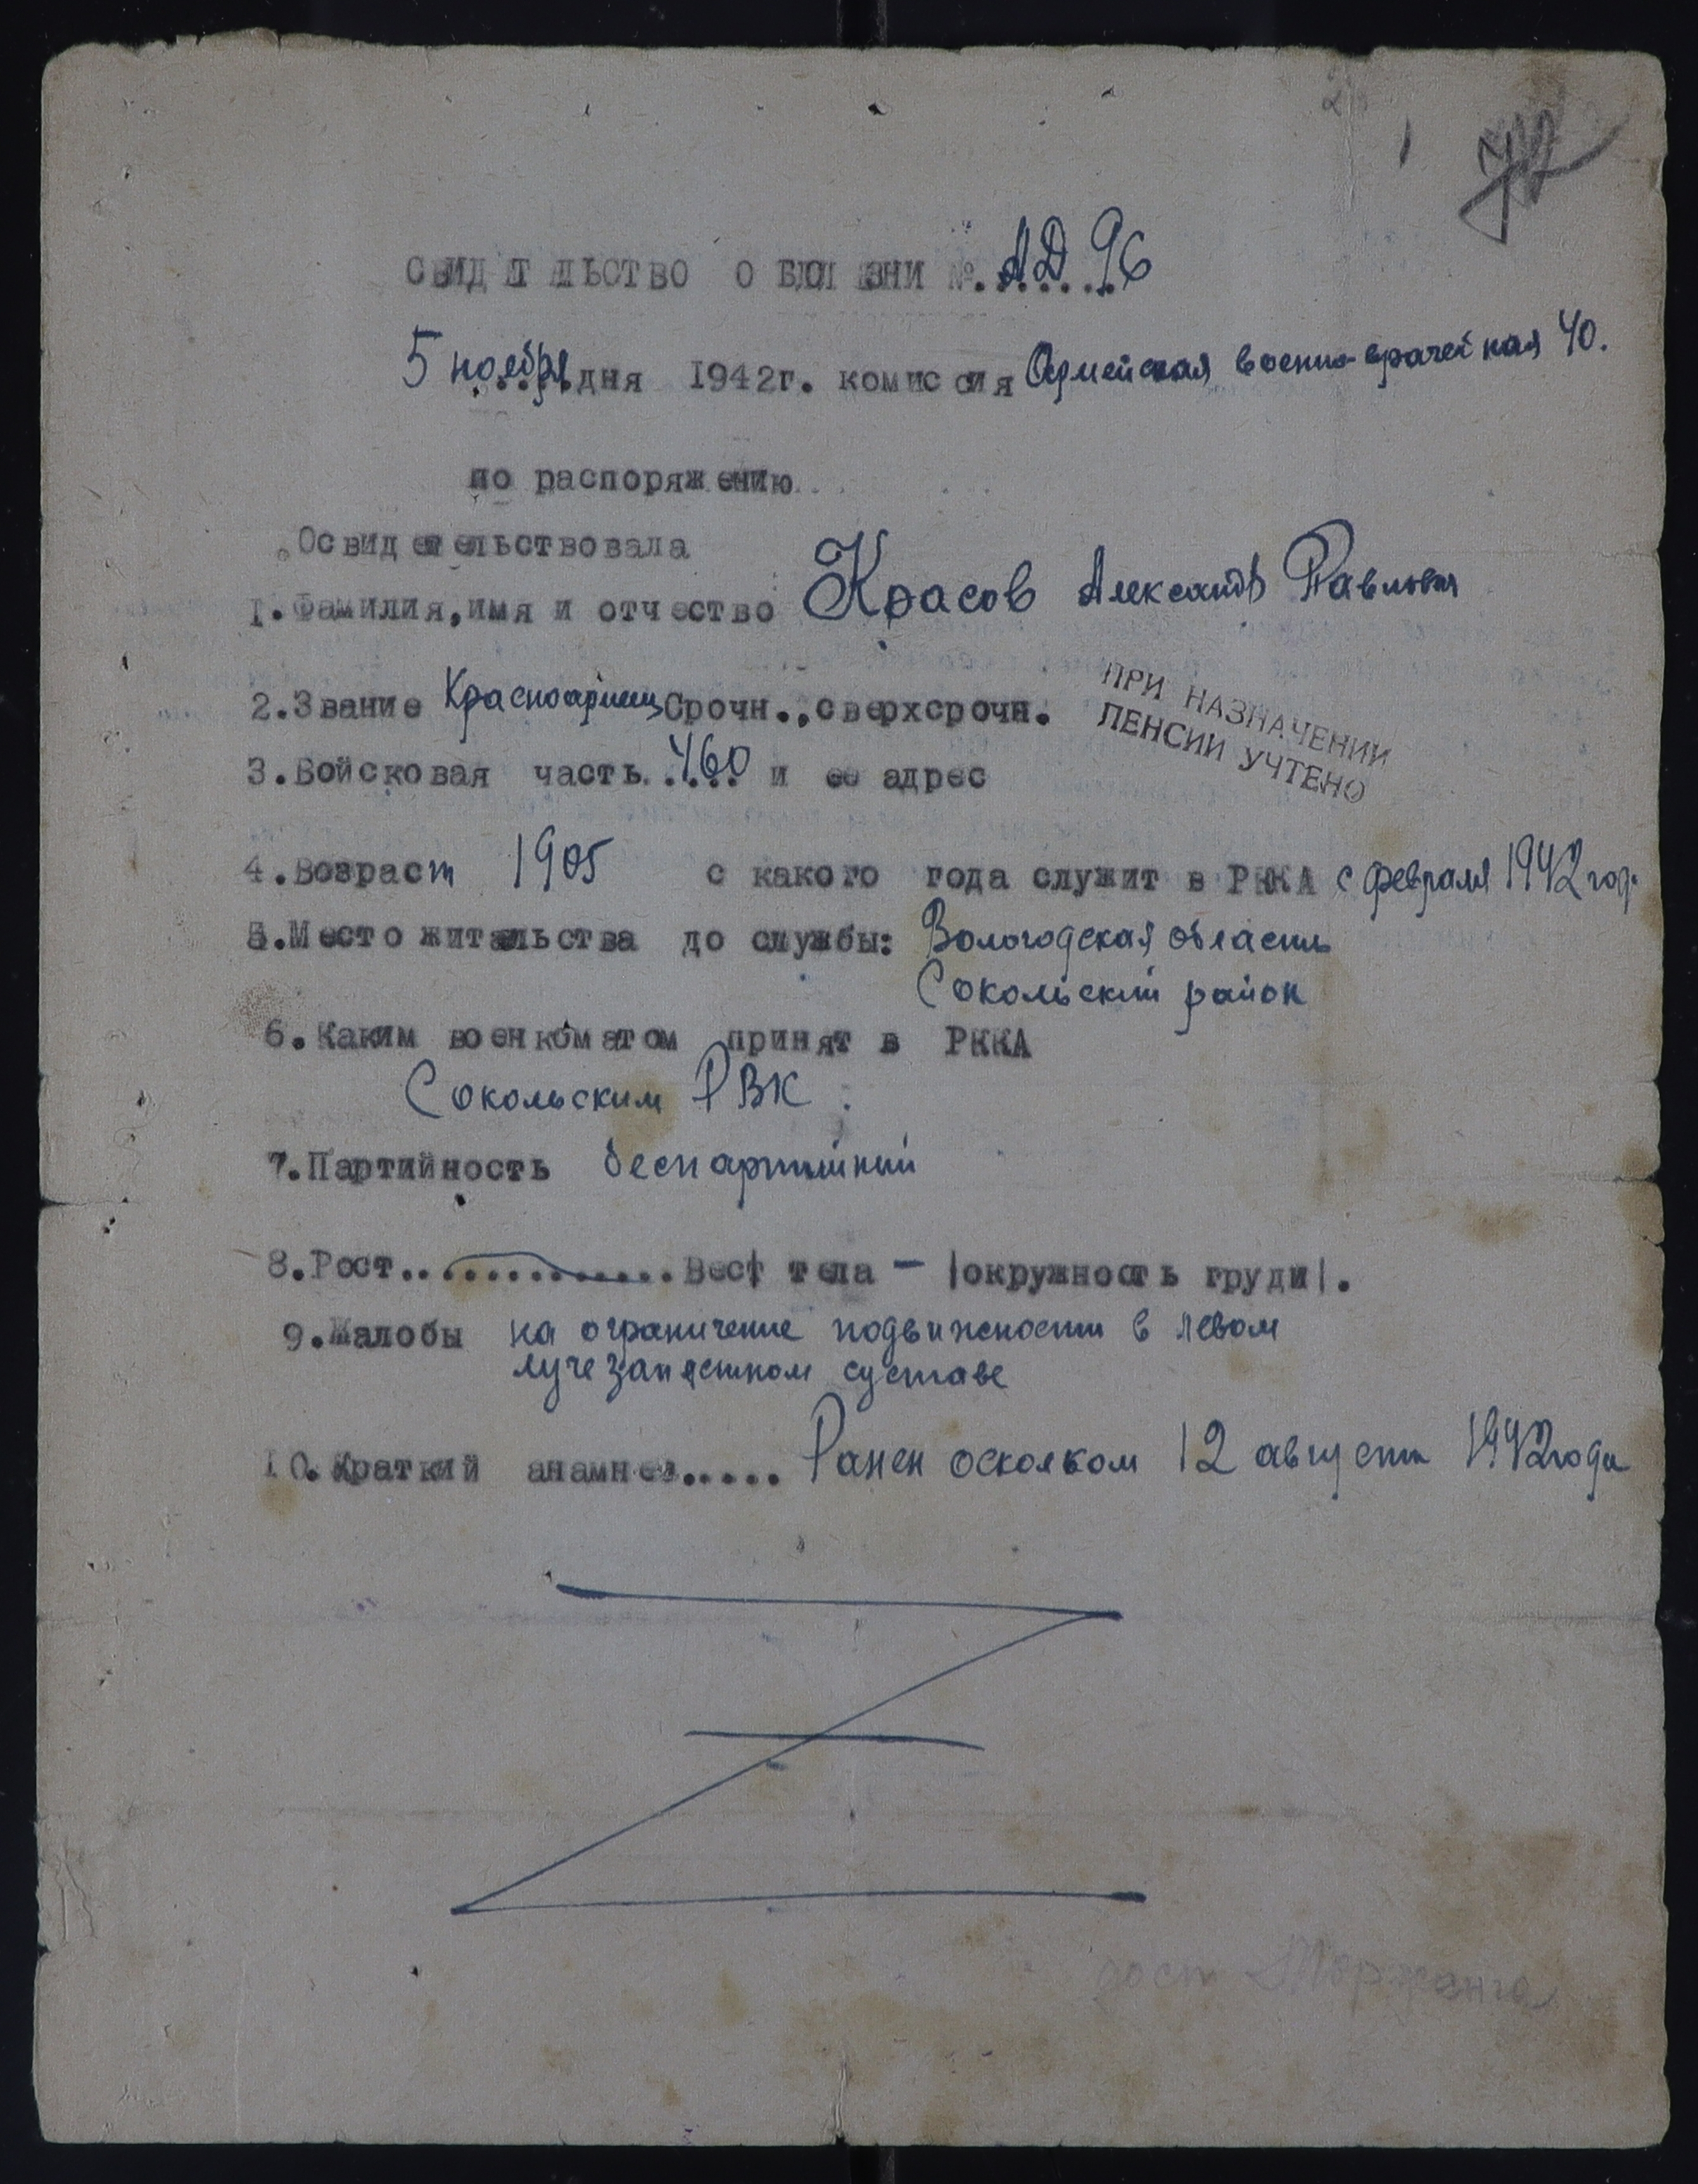 72
СВИДЕТЕЛЬСТВО О БОЛЕЗНИ №. АД 96
5 ноября дня 1942г. комиссия Армейская военно-врачебная 40.
по распоряжению
Освидетельствовала
1. Фамилия, имя и отчество Красов Александр Павлович
2. Звание Красноармеец Срочн., сверхсрочн.
ПРИ НАЗНАЧЕНИИ
ПЕНСИИ УЧТЕНО
3. Войсковая часть 460 и ее адрес
4. Возраст 1905 с какого года служит в РККА с февраля 1942 год.
5. Место жительства до службы: Вологодская область
Сокольский район
6. Каким военкоматом принят в РККА
Сокольским РВК
7. Партийность беспартийный
8. Рост.............. Вес тела - |окружность груди|.
9. Жалобы на ограничение подвижности в левом
лучезапястном суставе
10. Краткий анамнез..... Ранен осколком 12 августа 1942 года